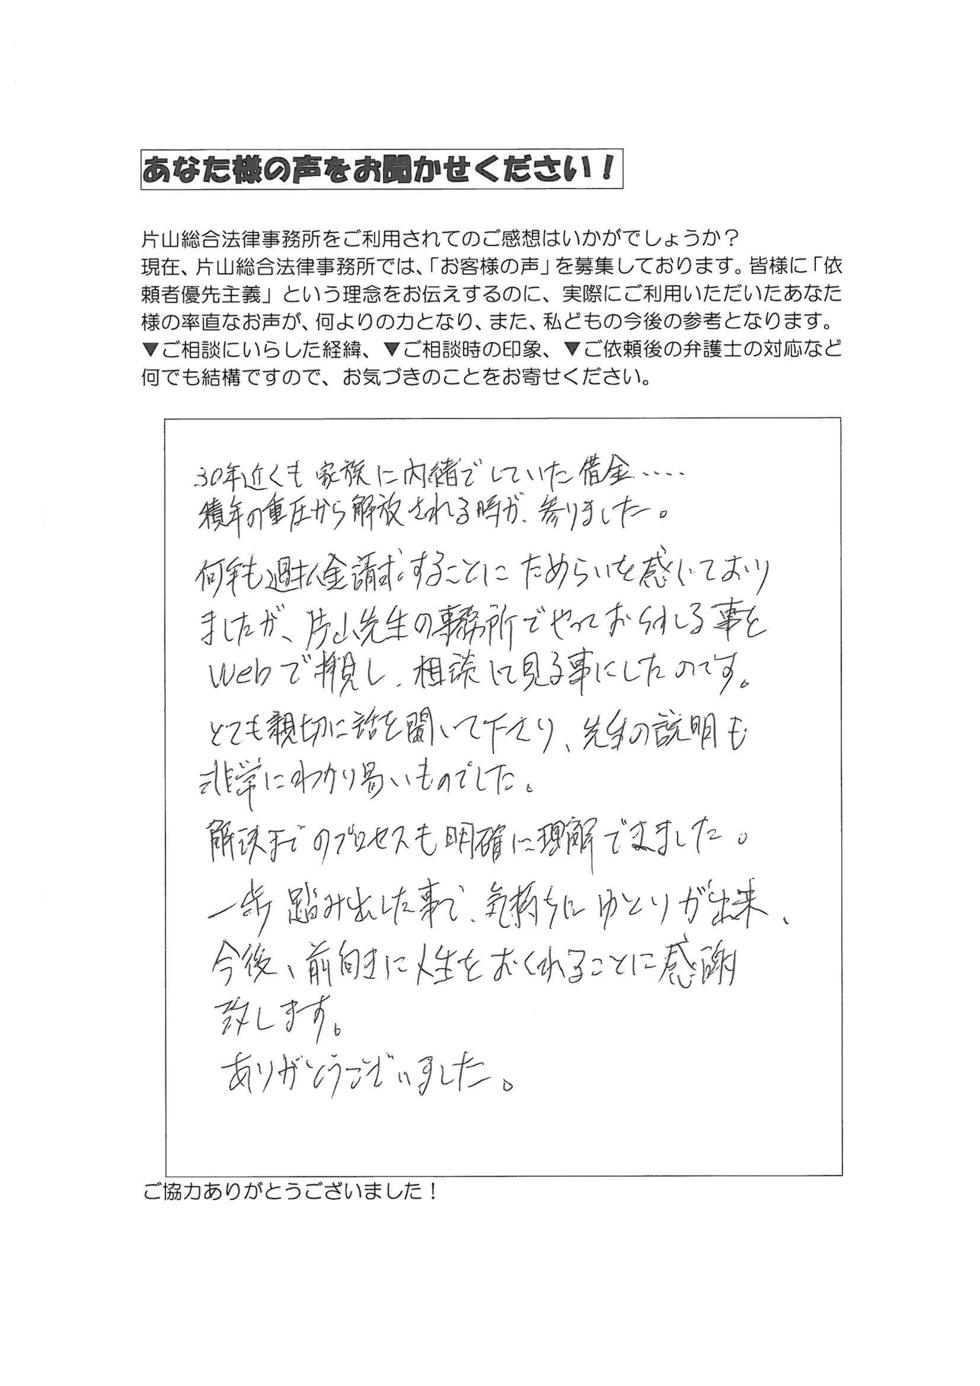 あなた様の声をお聞かせください！
片山総合法律事務所をご利用されてのご感想はいかがでしょうか？
現在、片山総合法律事務所では、「お客様の声」を募集しております。皆様に「依
頼者優先主義」という理念をお伝えするのに、実際にご利用いただいたあなた
様の率直なお声が、何よりの力となり、また、私どもの今後の参考となります。
▼ご相談にいらした経緯、▼ご相談時の印象、▼ご依頼後の弁護士の対応など
何でも結構ですので、お気づきのことをお寄せください。
30年近くも家族に内緒でしていた借金.....
積年の重圧から解放される時が、参りました。
何年も過払金請求することにためらいを感じており
ましたが、片山先生の事務所でやっておられる事を
Webで拝見し、相談して見る事にしたのです。
とても親切に話を聞いて下さり、先生の説明も
非常にわかり易いものでした。
解決までのプロセスも明確に理解できました。
一歩踏み出した事で、気持ちにゆとりが出来、
今後、前向きに人生をおくれることに感謝
致します。
ありがとうございました。
ご協力ありがとうございました！